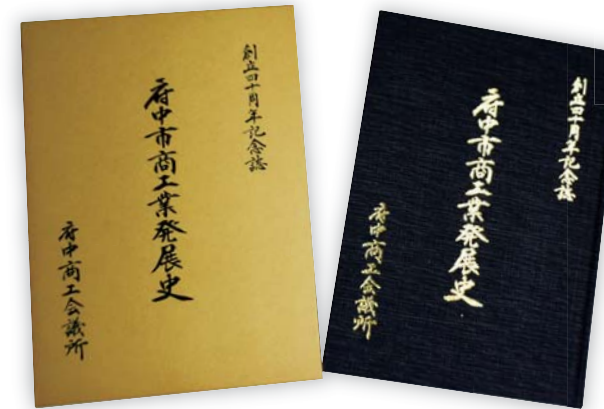 創立四十周年記念誌
府中市商工業発展史
府中商工会議所
創立四十周年記念誌
府中市商工業発展史
府中商工会議所